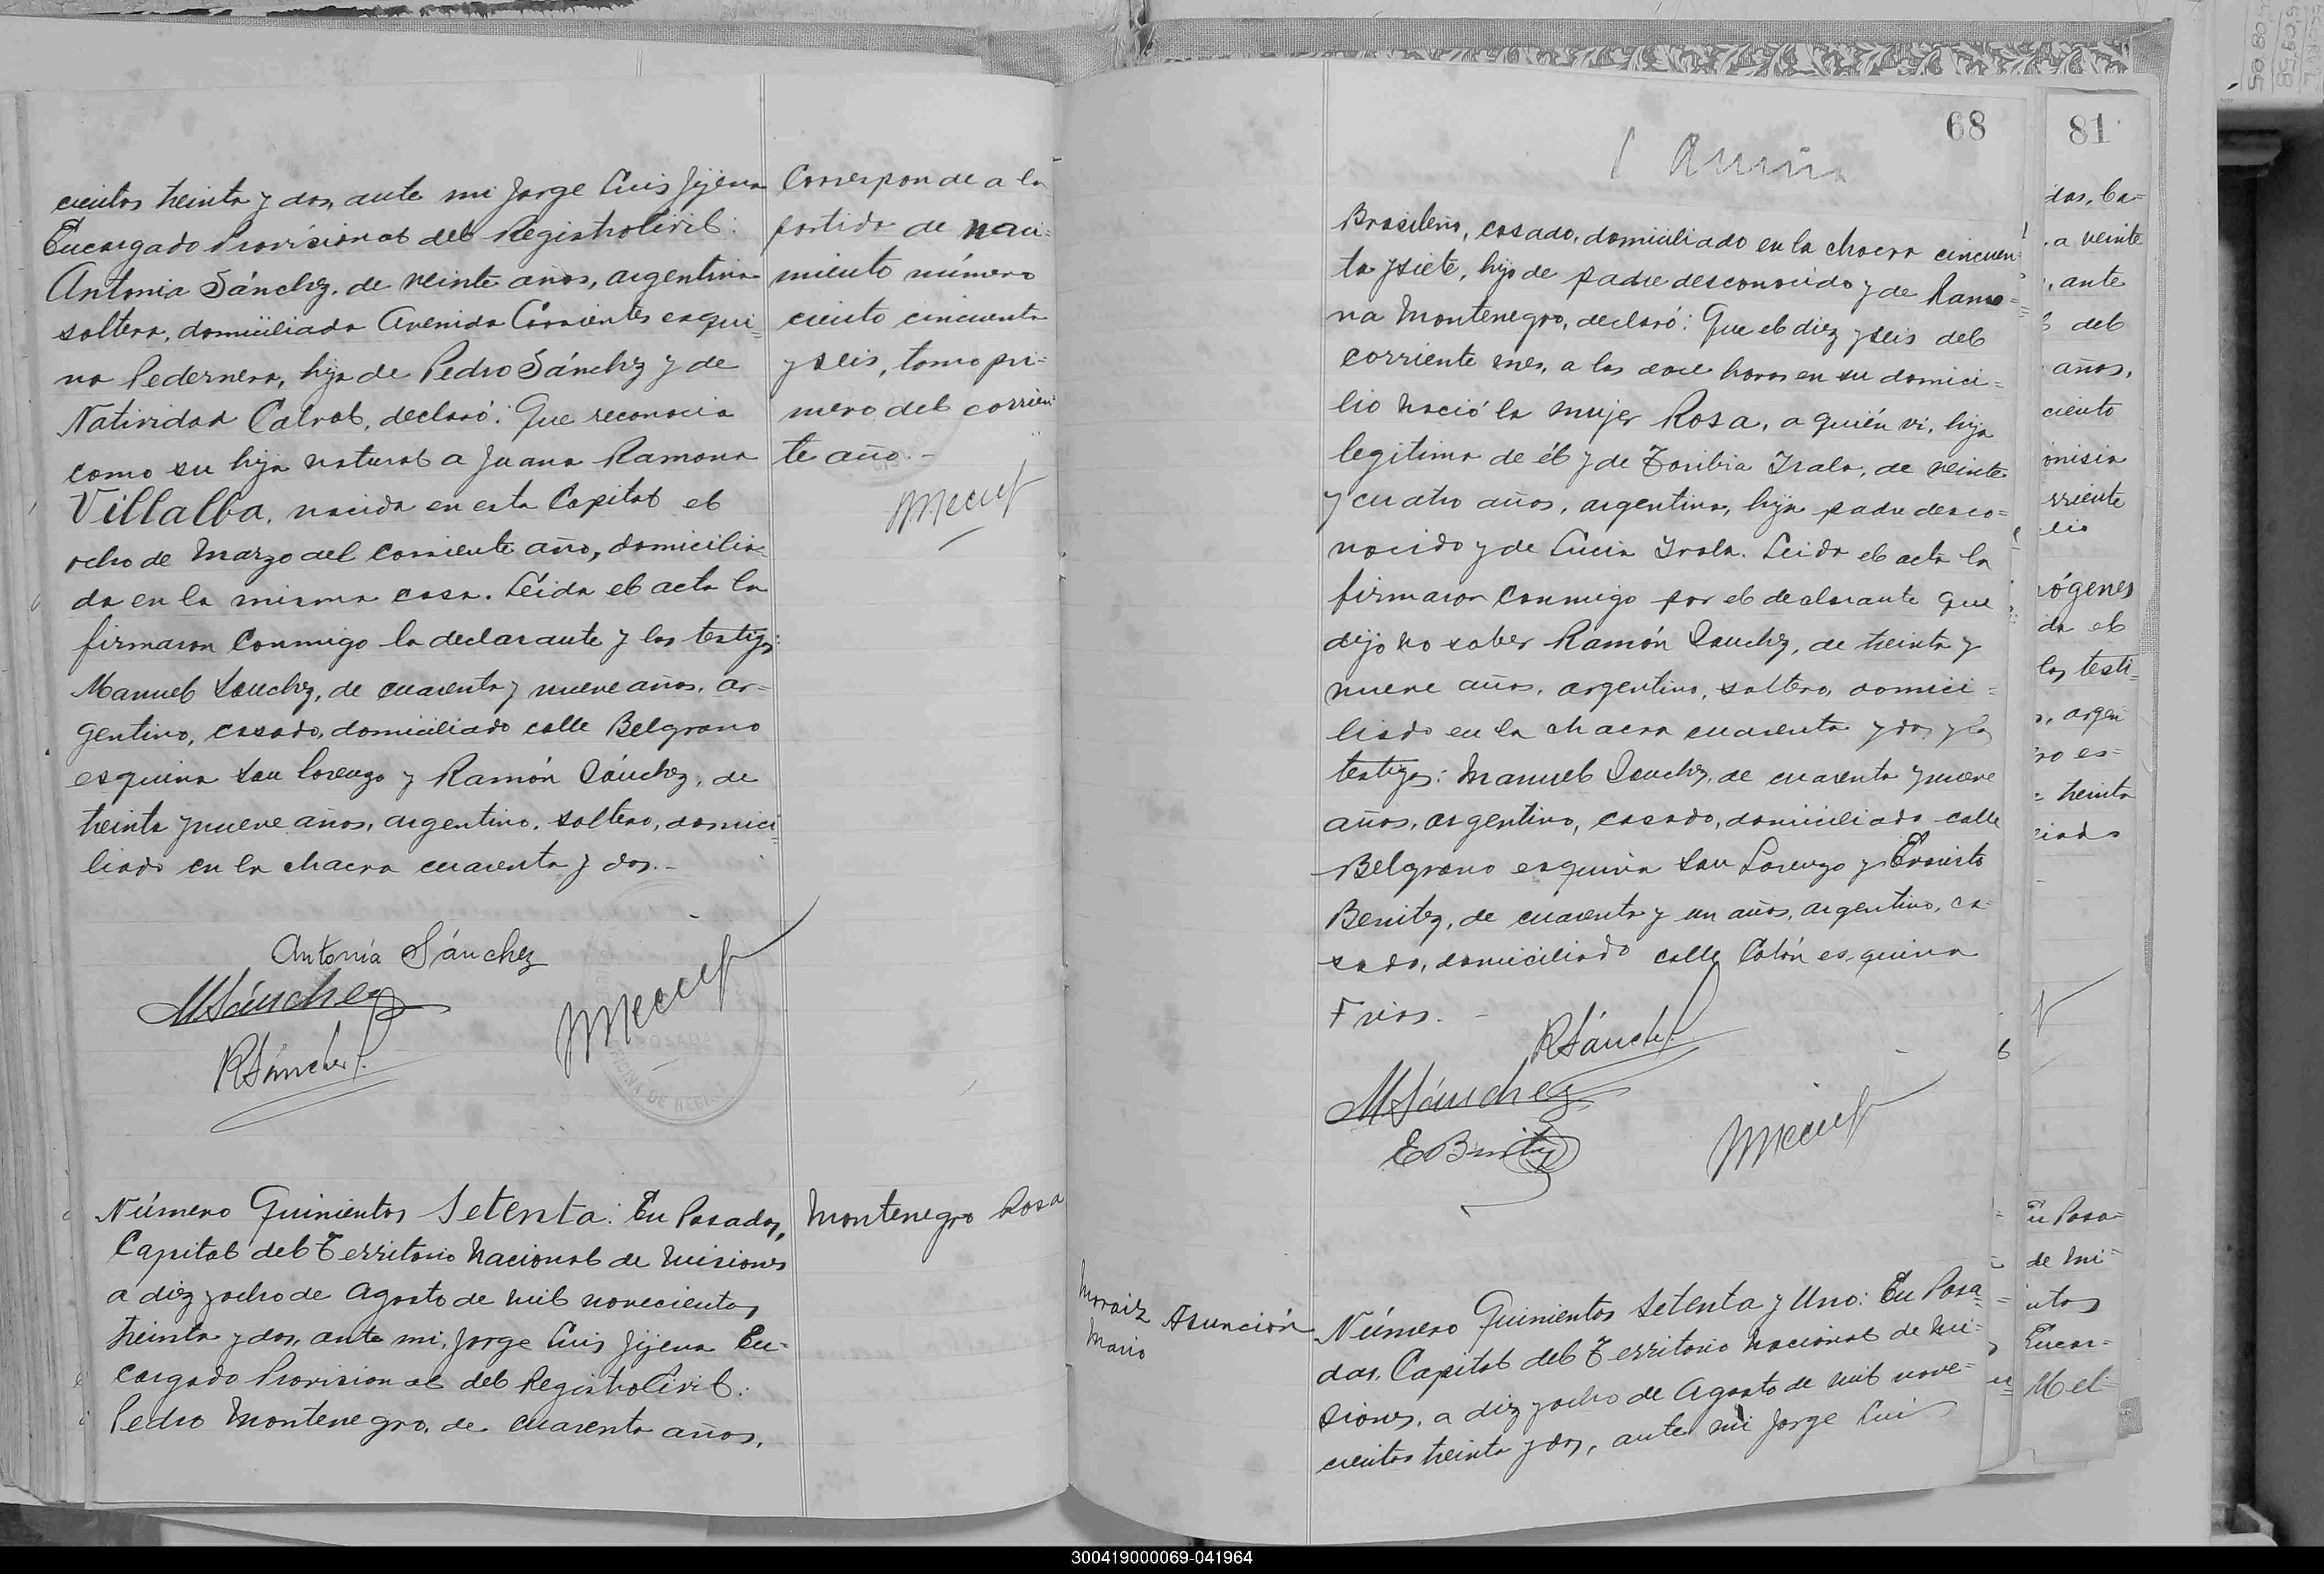 cientos treinta y dos, ante mi Jorge Luis Jijena
Encargado Provisional del Registro Civil:
Antonia Sánchez, de veinte años, argentina
soltera, domiciliada Avenida Corrientes esqui=
na Pedernera, hija de Pedro Sánchez y de
Natividad Cabral, declaró: Que reconocia
como su hija natural a Juana Ramona
Villalba, nacida en esta Capital el
ocho de Marzo del corriente año, domicilia=
da en la misma casa. Leída el acta la
firmaron conmigo la declarante y los testigos:
Manuel Sanchez, de cuarenta y nueve años, ar=
gentino, casado, domiciliado calle Belgrano
esquina San Lorenzo y Ramón Sánchez, de
treinta y nueve años, argentino, soltero, domici=
liado en la chacra cuarenta y dos.-
Corresponde a la
partida de naci=
miento número
ciento cincuenta
y seis, tomo pri=
mero del corrien=
te año.-
Antonia Sánchez
MSánchez
RSánchez
POSADAS
OFICINA DE REGIS
Número Quinientos Setenta: En Posadas,
Capital del Territorio Nacional de Misiones
a diez y ocho de Agosto de mil novecientos
treinta y dos, ante mi, Jorge Luis Jijena En=
cargado Provisional del Registro Civil:
Pedro Montenegro, de cuarenta años,
Montenegro Rosa
68
Brasileño, casado, domiciliado en la chacra cincuen=
ta y siete, hijo de padre desconocido y de Ramo=
na Montenegro, declaró: Que el diez y seis del
corriente mes, a las doce horas en su domici=
lio nació la mujer Rosa, a quién vi, hija
legitima de él y de Toribia Irala, de veinte
y cuatro años, argentina, hija padre desco=
nocido y de Lucia Irala. Leida el acta la
firmaron conmigo por el declarante que
dijo no saber Ramón Sanchez, de treinta y
nueve años, argentino, soltero, domici=
liado en la chacra cuarenta y dos y los
testigos: Manuel Sanchez, de cuarenta y nueve
años, argentino, casado, domiciliado calle
Belgrano esquina San Lorenzo y Evaristo
Benitez, de cuarenta y un años, argentino, ca=
sado, domiciliado calle Colón esquina
Frias.-
RSánchez
MSánchez
EBenitez
Asunción
Mario
Número Quinientos Setenta y Uno: En Posa=
das, Capital del Territorio Nacional de Mi=
siones, a diez y ocho de Agosto de mil nove=
cientos treinta y dos, ante mi Jorge Luis
81
das, Ca=
a veinte
, ante
del
años,
ciento
onisia
rriente
lio
rógenes
da el
los testi=
, argen
ro es=
treinta
liado
En Posa=
de Mi=
ntos
Encar=
Mel
300419000069-041964